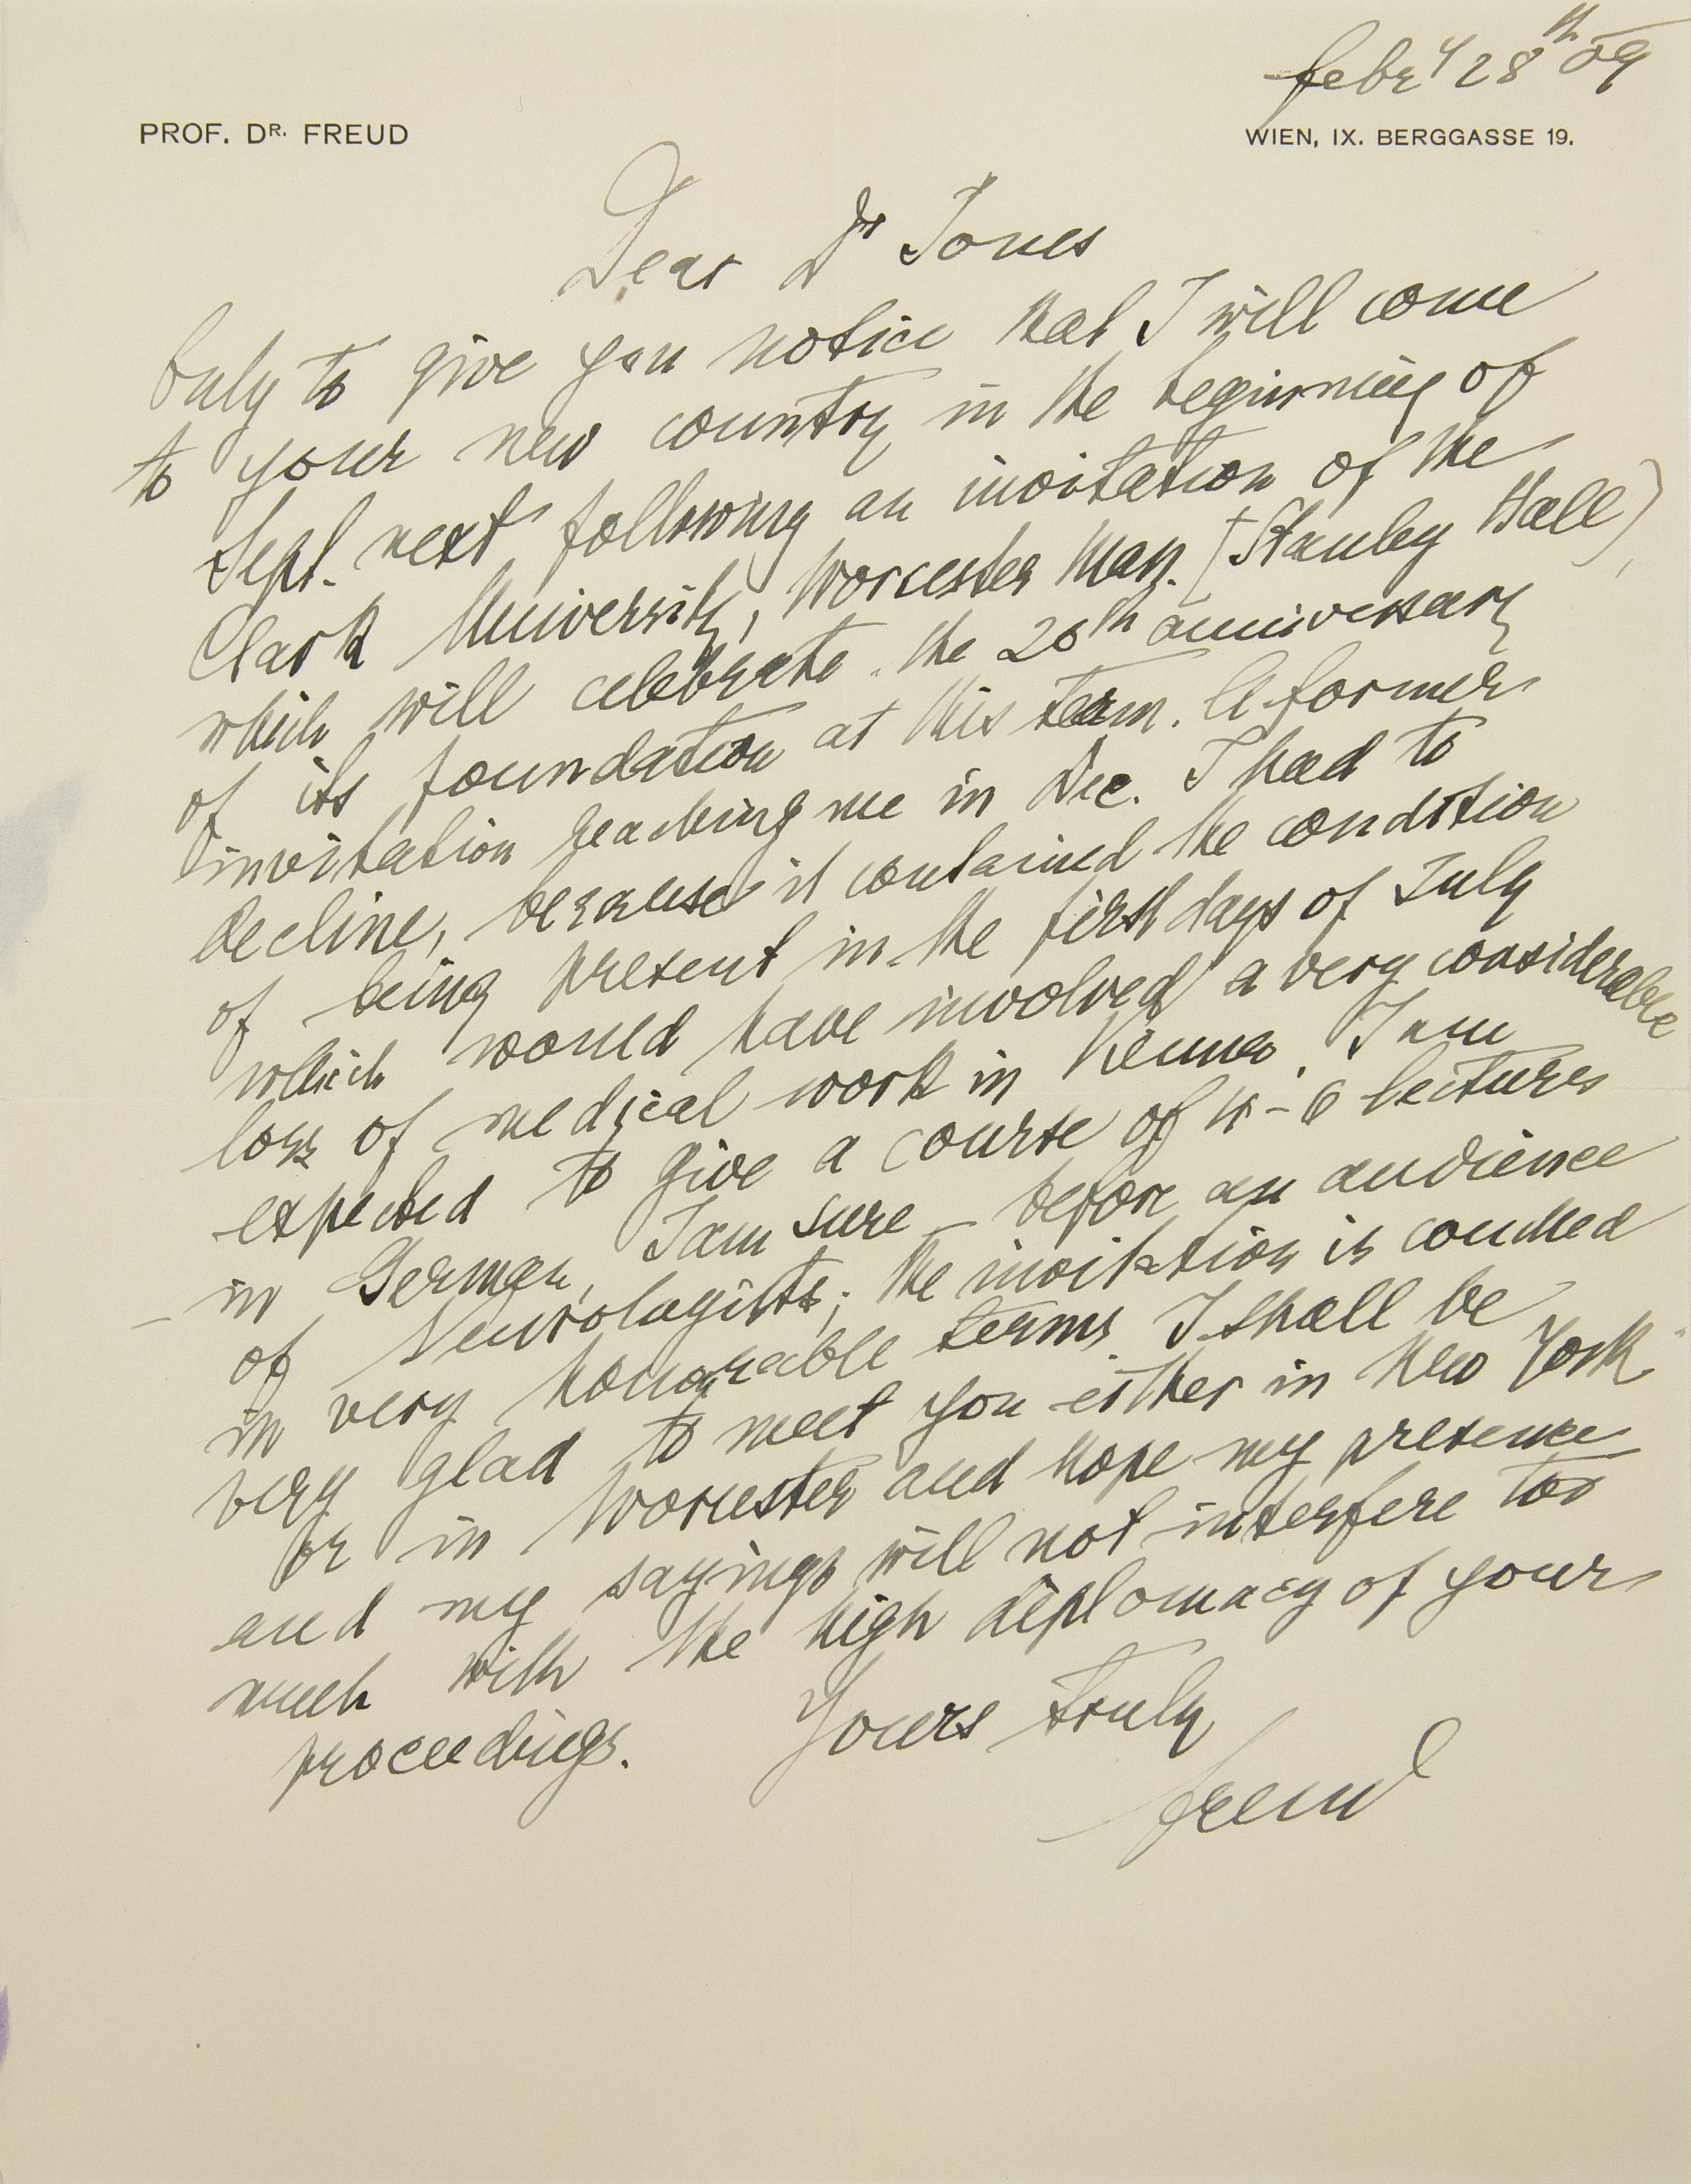 Febry 28th 09
PROF. DR. FREUD
WIEN, IX. BERGGASSE 19.
Dear Dr Jones
Only to give you notice that I will come
to your new country in the beginning of
Sept. next following an invitation of the
Clark University, Worcester Mass. (Stanley Hall),
which will celebrate the 20th anniversary
of its foundation at this term. A former
invitation reaching me in Dec. I had to
decline, because it contained the condition
of being present in the first days of July
which would have involved a very considerable
loss of medical work in Vienna. I am
expected to give a course of 4-6 lectures
in German, I am sure – before an audience
of Neurologists; the invitation is couched
in very honourable terms. I shall be
very glad to meet you either in New York
or in Worcester and hope my presence
and my sayings will not interfere too
much with the high diplomacy of your
proceedings.
Yours truly
Freud